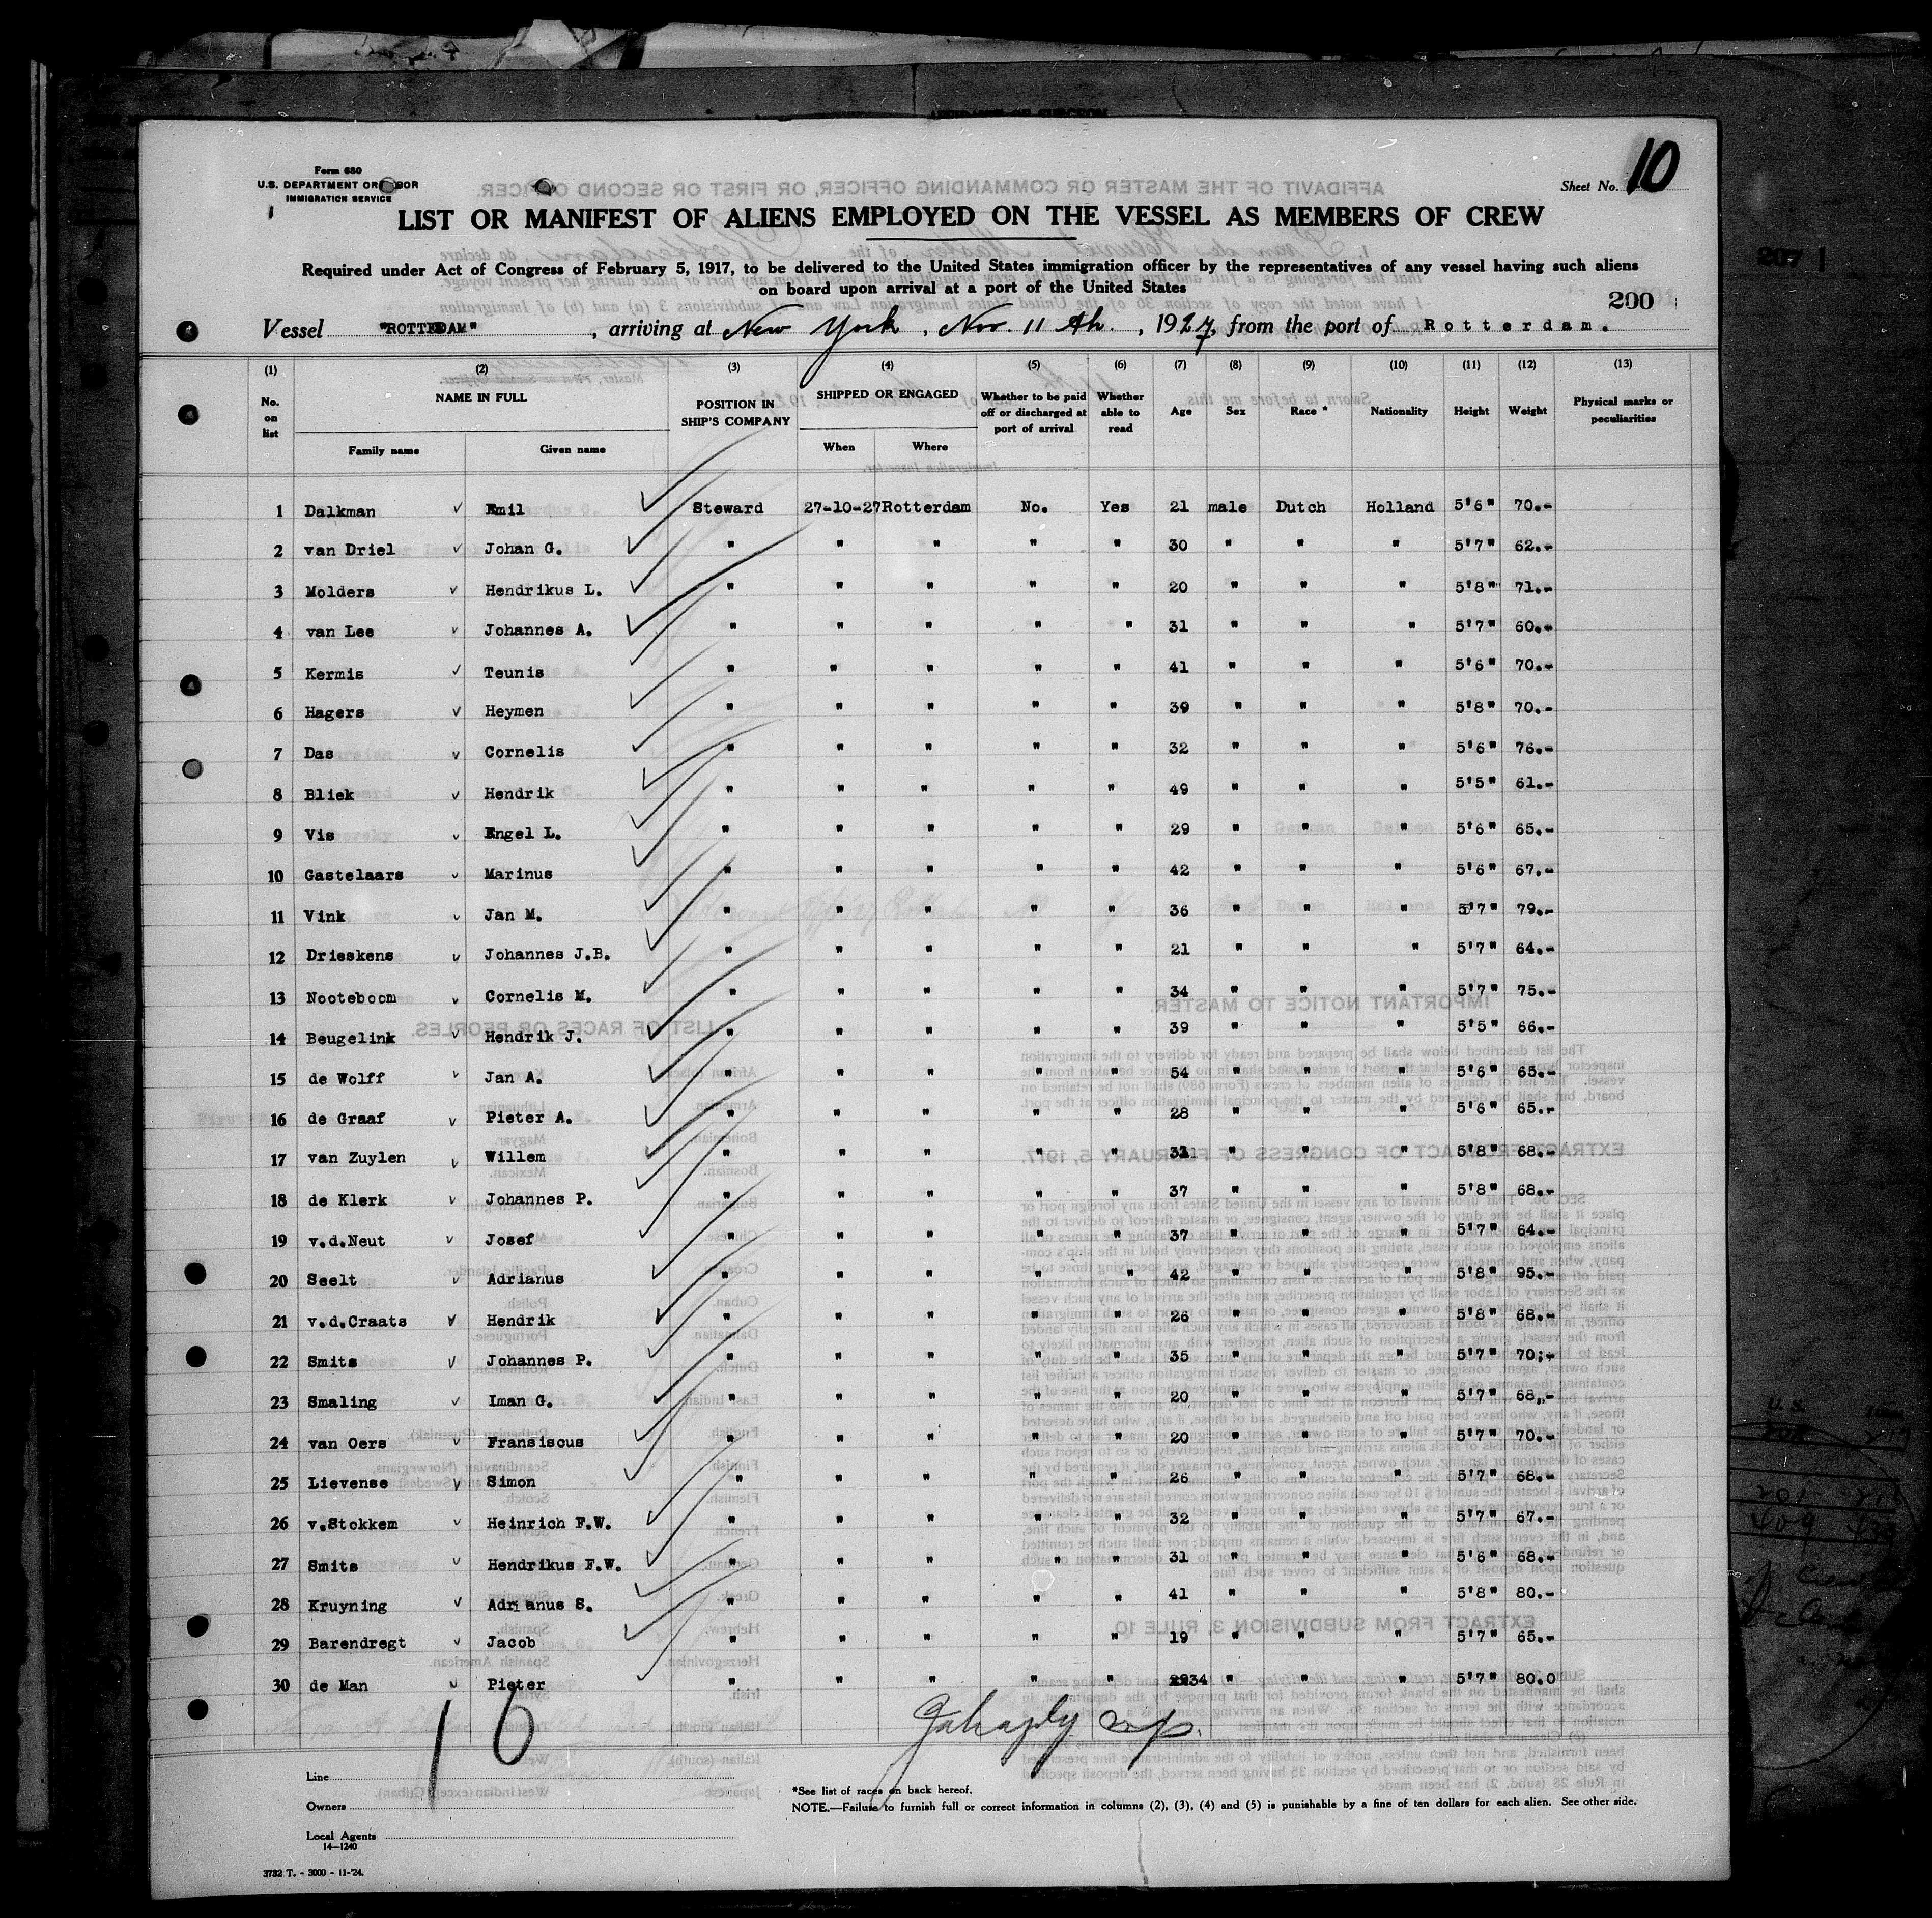 Form 680
U.S. DEPARTMENT OF LABOR
IMMIGRATION SERVICE
Sheet No. 10
LIST OR MANIFEST OF ALIENS EMPLOYED ON THE VESSEL AS MEMBERS OF CREW
Required under Act of Congress of February 5, 1917, to be delivered to the United States immigration officer by the representatives of any vessel having such aliens
on board upon arrival at a port of the United States
200
207
Vessel "ROTTERDAM", arriving at New York, Nov. 11 th., 1927, from the port of Rotterdam.
(1) (2) (3) (4) (5) (6) (7) (8) (9) (10) (11) (12) (13)
No. on list NAME IN FULL Family name Given name POSITION IN SHIP'S COMPANY SHIPPED OR ENGAGED When Where Whether to be paid off or discharged at port of arrival Whether able to read Age Sex Race * Nationality Height Weight Physical marks or peculiarities
1 Dalkman Emil Steward 27-10-27 Rotterdam No. Yes 21 male Dutch Holland 5'6" 70.-
2 van Driel Johan G. " " " " " 30 " " " 5'7" 62.-
3 Molders Hendrikus L. " " " " " 20 " " " 5'8" 71.-
4 van Lee Johannes A. " " " " " 31 " " " 5'7" 60.-
5 Kermis Teunis " " " " " 41 " " " 5'6" 70.-
6 Hagers Heymen " " " " " 39 " " " 5'8" 70.-
7 Das Cornelis " " " " " 32 " " " 5'6" 76.-
8 Bliek Hendrik " " " " " 49 " " " 5'5" 61.-
9 Vis Engel L. " " " " " 29 " " " 5'6" 65.-
10 Gastelaars Marinus " " " " " 42 " " " 5'6" 67.-
11 Vink Jan M. " " " " " 36 " " " 5'7" 79.-
12 Drieskens Johannes J.B. " " " " " 21 " " " 5'7" 64.-
13 Nooteboom Cornelis M. " " " " " 34 " " " 5'7" 75.-
14 Beugelink Hendrik J. " " " " " 39 " " " 5'5" 66.-
15 de Wolff Jan A. " " " " " 54 " " " 5'6" 65.-
16 de Graaf Pieter A. " " " " " 28 " " " 5'6" 65.-
17 van Zuylen Willem " " " " " " " " 5'8" 68.-
18 de Klerk Johannes P. " " " " " 37 " " " 5'8" 68.-
19 v.d.Neut Josef " " " " " 37 " " " 5'7" 64.-
20 Seelt Adrianus " " " " " 42 " " " 5'8" 95.-
21 v.d.Craats Hendrik " " " " " 26 " " " 5'8" 68.-
22 Smits Johannes P. " " " " " 35 " " " 5'7" 70;-
23 Smaling Iman G. " " " " " 20 " " " 5'7" 68,-
24 van Oers Fransiscus " " " " " 20 " " " 5'7" 70.-
25 Lievense Simon " " " " " 26 " " " 5'7" 68.-
26 v.Stokkem Heinrich F.W. " " " " " 32 " " " 5'7" 67.-
27 Smits Hendrikus F.W. " " " " " 31 " " " 5'6" 68.-
28 Kruyning Adrianus S. " " " " " 41 " " " 5'8" 80.-
29 Barendregt Jacob " " " " " 19 " " " 5'7" 65.-
30 de Man Pieter " " " " " 34 " " " 5'7" 80.0
Line
Owners
Local Agents
14—1240
3732 T. - 3000 - 11-'24.
*See list of races on back hereof.
NOTE.—Failure to furnish full or correct information in columns (2), (3), (4) and (5) is punishable by a fine of ten dollars for each alien. See other side.